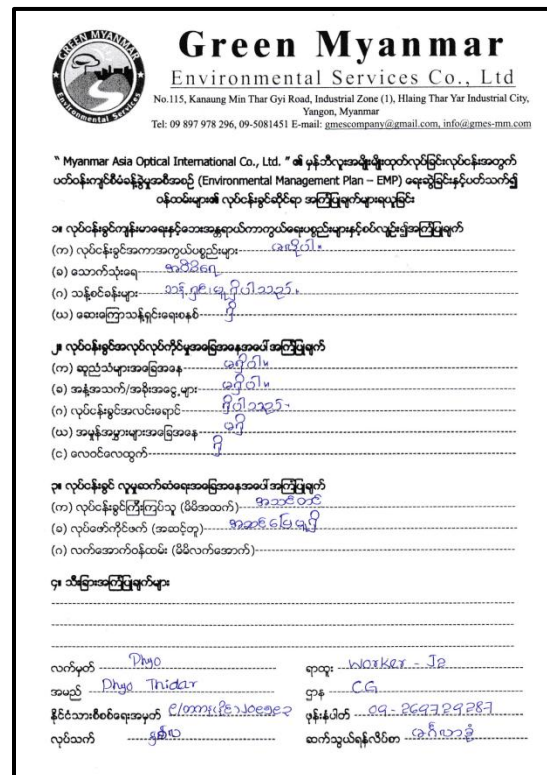 GREEN MYANMAR
Environmental Services
Green Myanmar
Environmental Services Co., Ltd
No.115, Kanaung Min Thar Gyi Road, Industrial Zone (1), Hlaing Thar Yar Industrial City,
Yangon, Myanmar
Tel: 09 897 978 296, 09-5081451 E-mail: gmescompany@gmail.com, info@gmes-mm.com
“ Myanmar Asia Optical International Co., Ltd. ” ၏ မှန်ဘီလူးအမျိုးမျိုးထုတ်လုပ်ခြင်းလုပ်ငန်းအတွက်
ပတ်ဝန်းကျင်စီမံခန့်ခွဲမှုအစီအစဉ် (Environmental Management Plan – EMP) ရေးဆွဲခြင်းနှင့်ပတ်သက်၍
ဝန်ထမ်းများ၏ လုပ်ငန်းခွင်ဆိုင်ရာ အကြံပြုချက်များရယူခြင်း
၁။ လုပ်ငန်းခွင်ကျန်းမာရေးနှင့်ဘေးအန္တရာယ်ကာကွယ်ရေးပစ္စည်းများနှင့်စပ်လျဉ်း၍အကြံပြုချက်
(က) လုပ်ငန်းခွင်အကာအကွယ်ပစ္စည်းများ မလိုပါ။
(ခ) သောက်သုံးရေ
(ဂ) သန့်စင်ခန်းများ ရှိပါသည်။
(ဃ) ဆေးကြောသန့်ရှင်းရေးစနစ် ရှိ
၂။ လုပ်ငန်းခွင်အလုပ်လုပ်ကိုင်မှုအခြေအနေအပေါ် အကြံပြုချက်
(က) ဆူညံသံများအခြေအနေ မရှိပါ။
(ခ) အနံ့အသက်/အခိုးအငွေ့များ မရှိပါ။
(ဂ) လုပ်ငန်းခွင်အလင်းရောင် ရှိပါသည်။
(ဃ) အမှုန်အမွှားများအခြေအနေ မရှိ
(င) လေဝင်လေထွက် ရှိ
၃။ လုပ်ငန်းခွင် လူမှုဆက်ဆံရေးအခြေအနေအပေါ် အကြံပြုချက်
(က) လုပ်ငန်းခွင်ကြီးကြပ်သူ (မိမိအထက်) အဆင်
(ခ) လုပ်ဖော်ကိုင်ဖက် (အဆင့်တူ) အဆင်ပြေမှုရှိ
(ဂ) လက်အောက်ဝန်ထမ်း (မိမိလက်အောက်)
၄။ သီးခြားအကြံပြုချက်များ
လက်မှတ် Phyo
ရာထူး Worker - J2
အမည် Phyo Thidar
ဌာန CG
နိုင်ငံသားစိစစ်ရေးအမှတ်
ဖုန်းနံပါတ် 09-269729287
လုပ်သက်
ဆက်သွယ်ရန်လိပ်စာ မင်္ဂလာဒုံ